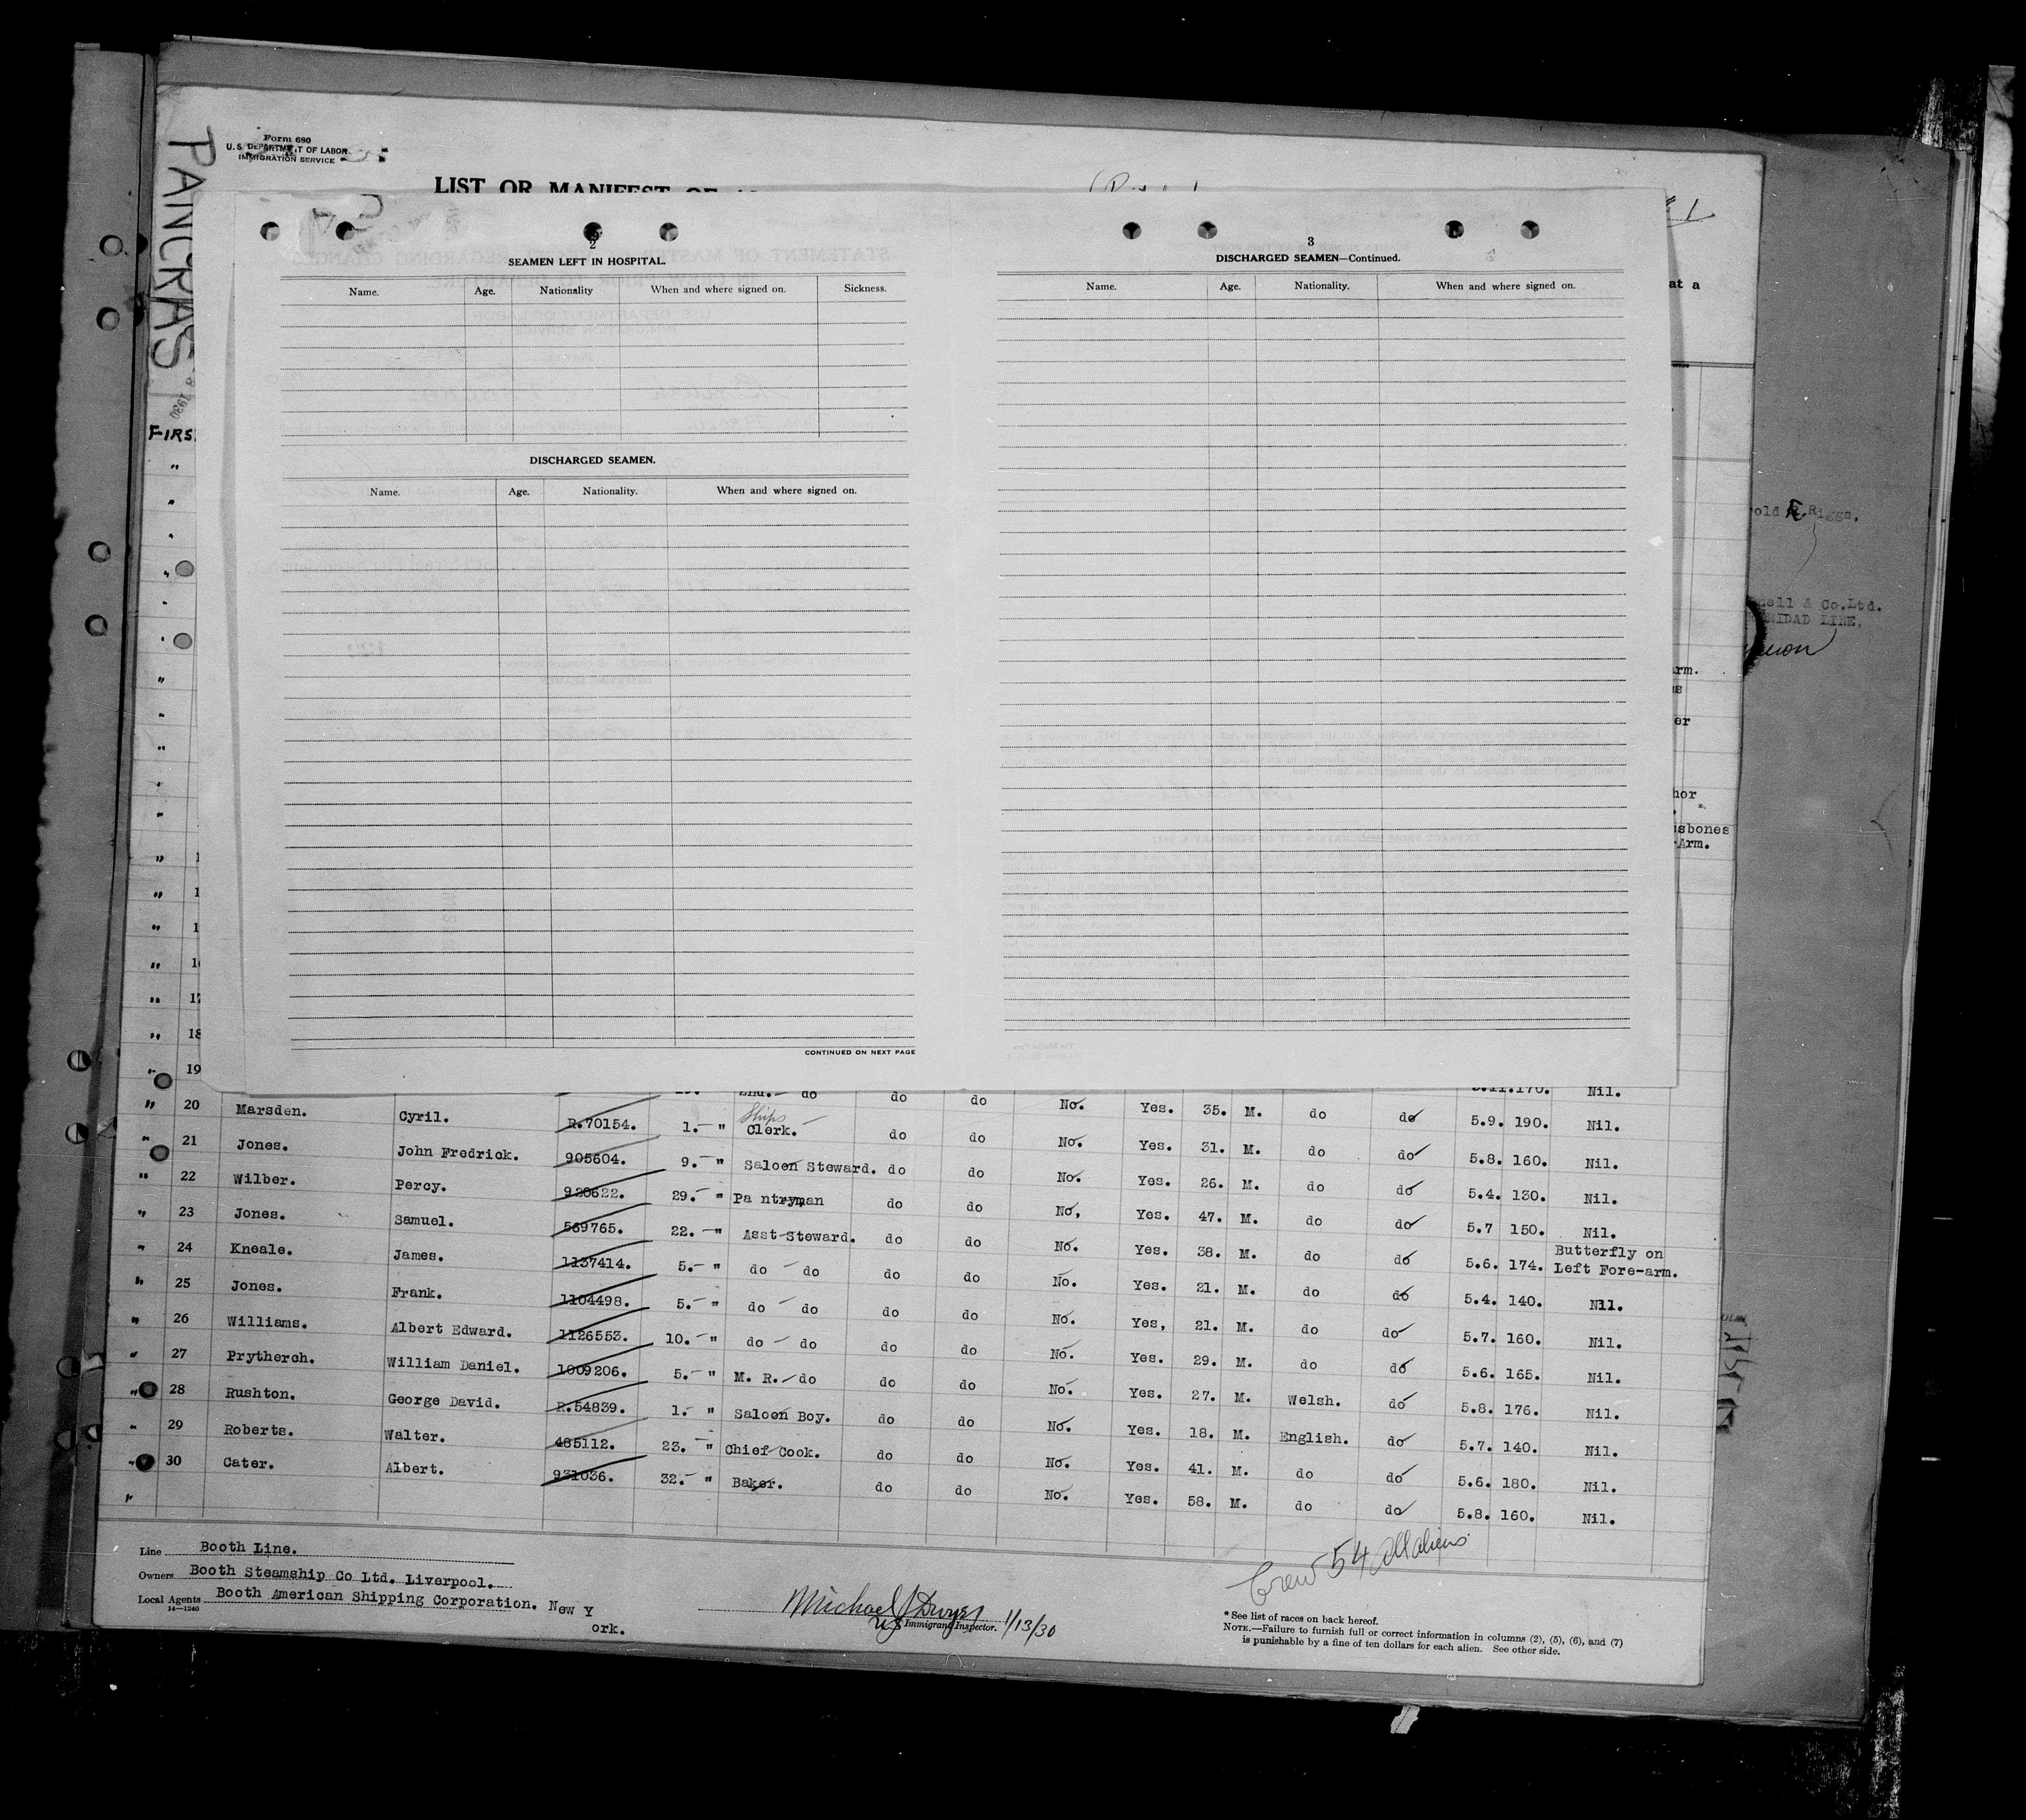 Form 680
U. S. DEPARTMENT OF LABOR
IMMIGRATION SERVICE
LIST OR MANIFEST OF
PANCRAS
1930
FIRS
at a
2
SEAMEN LEFT IN HOSPITAL.
Name. Age. Nationality When and where signed on. Sickness.
DISCHARGED SEAMEN.
Name. Age. Nationality. When and where signed on.
CONTINUED ON NEXT PAGE
3
DISCHARGED SEAMEN—Continued.
Name. Age. Nationality. When and where signed on.
old R Riggs,
nell & Co.Ltd.
NIDAD LINE,
rm.
s
er
hor
sbones
Arm.
" 1
" 1
" 1
" 16
" 17
" 18
5.11.170. Nil.
" 19 2nd. do do do No. Yes. 35. M. do do 5.9. 190. Nil.
" 20 Marsden. Cyril. R.70154. 1. " Ships Clerk. do do No. Yes. 31. M. do do 5.8. 160. Nil.
" 21 Jones. John Fredrick. 905604. 9. " Saloon Steward. do do No. Yes. 26. M. do do 5.4. 130. Nil.
" 22 Wilber. Percy. 920622. 29. " Pa ntryman do do No, Yes. 47. M. do do 5.7 150. Nil.
" 23 Jones. Samuel. 569765. 22. " Asst Steward. do do No. Yes. 38. M. do do 5.6. 174. Butterfly on Left Fore-arm.
" 24 Kneale. James. 1137414. 5. " do do do do No. Yes. 21. M. do do 5.4. 140. Nil.
" 25 Jones. Frank. 1104498. 5. " do do do do No. Yes, 21. M. do do 5.7. 160. Nil.
" 26 Williams. Albert Edward. 1126553. 10. " do do do do No. Yes. 29. M. do do 5.6. 165. Nil.
" 27 Prytherch. William Daniel. 1009206. 5. " M. R. do do do No. Yes. 27. M. Welsh. do 5.8. 176. Nil.
" 28 Rushton. George David. R.54839. 1. " Saloon Boy. do do No. Yes. 18. M. English. do 5.7. 140. Nil.
" 29 Roberts. Walter. 485112. 23. " Chief Cook. do do No. Yes. 41. M. do do 5.6. 180. Nil.
" 30 Cater. Albert. 931036. 32. " Baker. do do No. Yes. 58. M. do do 5.8. 160. Nil.
Line Booth Line.
Owners Booth Steamship Co Ltd. Liverpool.
Local Agents Booth American Shipping Corporation. New Y
ork.
14—1240
Michael J Dwyer
US Immigrant Inspector. 1/13/30
Crew 54 All aliens
* See list of races on back hereof.
NOTE.—Failure to furnish full or correct information in columns (2), (5), (6), and (7)
is punishable by a fine of ten dollars for each alien. See other side.